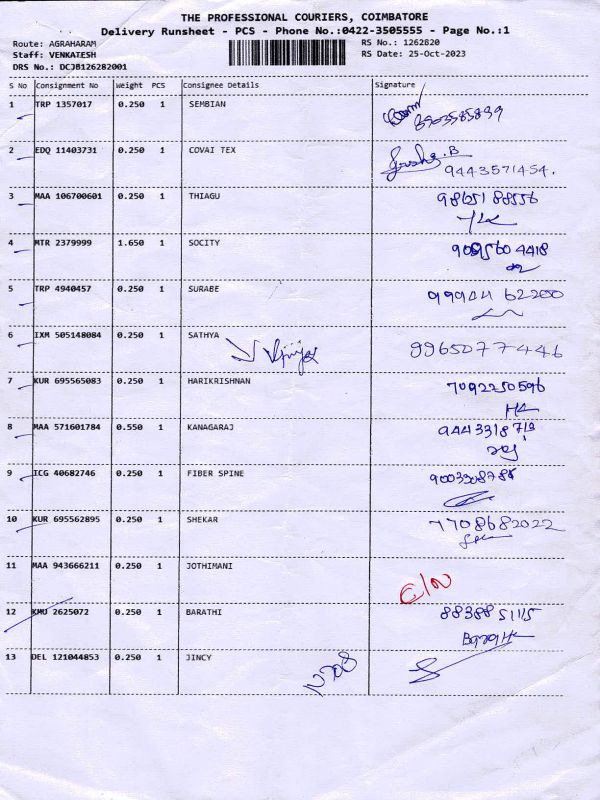 THE PROFESSIONAL COURIERS, COIMBATORE
Delivery Runsheet - PCS - Phone No.:0422-3505555 - Page No.:1
Route: AGRAHARAM RS No.: 1262820
Staff: VENKATESH RS Date: 25-Oct-2023
DRS No.: DCJB126282001
S No Consignment No Weight PCS Consignee Details Signature
1 TRP 1357017 0.250 1 SEMBIAN
8903585839
2 EDQ 11403731 0.250 1 COVAI TEX
9443571454.
3 MAA 106700601 0.250 1 THIAGU 98651 88556
4 MTR 2379999 1.650 1 SOCITY
9095604418
5 TRP 4940457 0.250 1 SURABE 99944 62200
6 IXM 505148084 0.250 1 SATHYA
9965077446
7 KUR 695565083 0.250 1 HARIKRISHNAN 7092250596
8 MAA 571601784 0.550 1 KANAGARAJ 9443318713
9 ICG 40682746 0.250 1 FIBER SPINE 9003308785
10 KUR 695562895 0.250 1 SHEKAR 7708682022
11 MAA 943666211 0.250 1 JOTHIMANI
12 KMU 2625072 0.250 1 BARATHI 88388 51115
13 DEL 121044853 0.250 1 JINCY